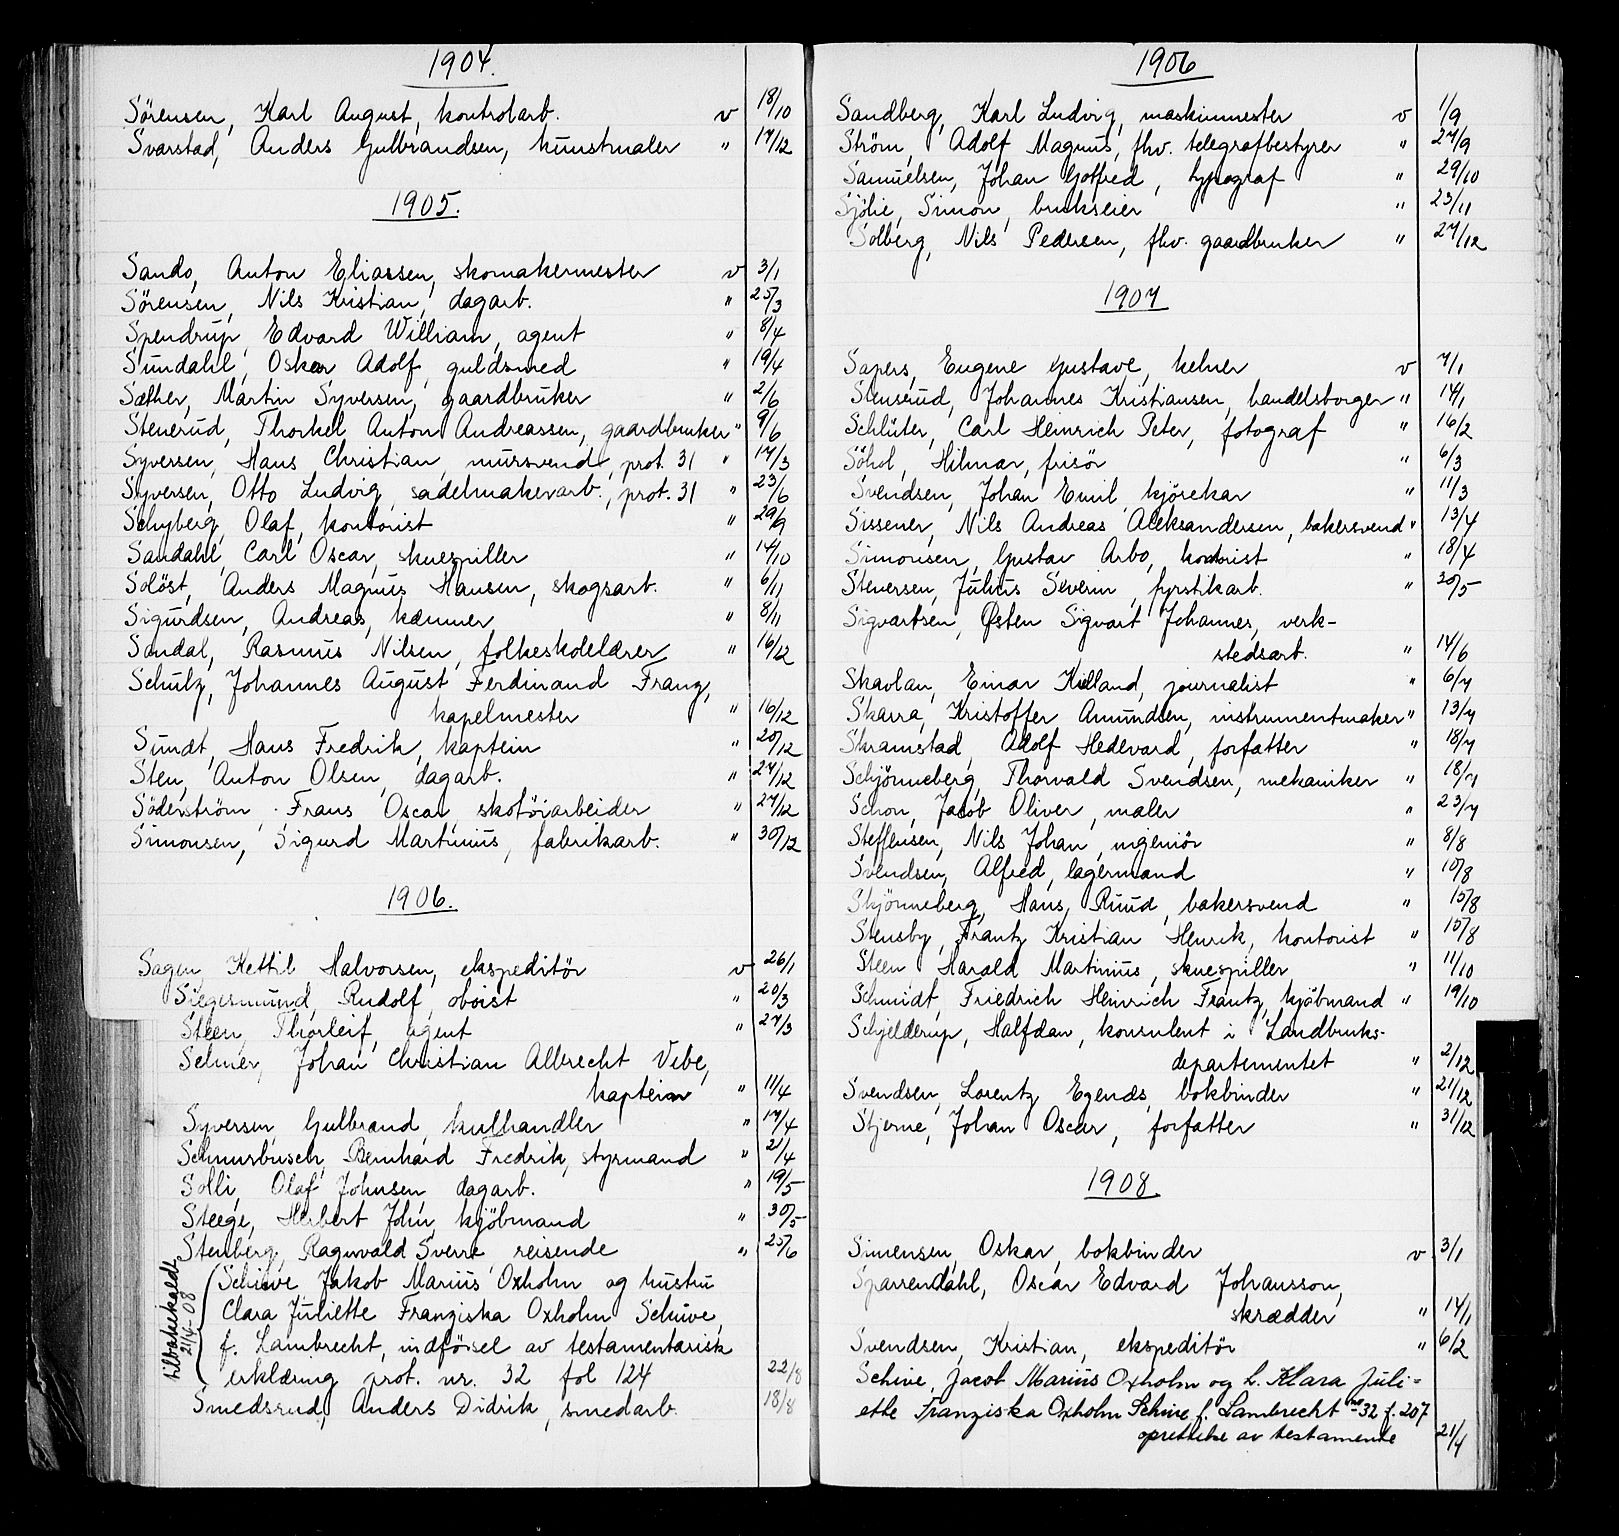 1904.
Sörensen, Karl August, kontrolarb. v 18/10
Svarstad, Anders Gulbrandsen, kunstmaler " 17/12
1905.
Sando, Anton Eliassen, skomakermester v 3/1
Sörensen, Nils Kristian, dagarb. " 25/3
Spendrup, Edvard William, agent " 8/4
Sundahl, Oskar Adolf, guldsmed " 19/4
Sæther, Martin Syversen, gaardbruker " 2/6
Stenerud, Thorkel Anton Andreassen, gaardbruker " 9/6
Syversen, Hans Christian, mursvend, prot. 31 " 17/3
Syversen, Otto Ludvig, sadelmakerarb., prot. 31 " 23/6
Schyberg, Olaf, kontorist " 29/9
Sandahl, Carl Oscar, skuespiller " 14/10
Solöst, Anders Magnus Hansen, skogsarb. " 6/11
Sigurdsen, Andreas, kæmner " 8/11
Sandal, Rasmus Nilsen, folkeskolelærer " 16/12
Schulz, Johannes August Ferdinand Franz,
kapelmester " 16/12
Sundt, Hans Fredrik, kaptein " 20/12
Sten, Anton Olsen, dagarb. " 27/12
Söderström, Frans Oscar, skotöiarbeider " 27/12
Simonsen, Sigurd Martinius, fabrikarb. " 30/12
1906.
Sagen, Kettil Halvorsen, ekspeditör v 26/1
Siegesmund, Rudolf, oboist " 20/3
Steen, Thorleif, agent " 27/3
Selmer, Johan Christian Albrecht Vibe,
kaptein " 11/4
Syversen, Gulbrand, kulhandler " 17/4
Schnurbusch, Bernhard Fredrik, styrmand " 21/4
Solli, Olaf Johnsen, dagarb. " 19/5
Steege, Herbert John, kjöbmand " 30/5
Stenberg, Ragnvald Sverre, reisende " 25/6
tilbakekaldt 21/4-08
Schive, Jakob Marius Oxholm og hustru
Clara Juliette Franziska Oxholm Schive,
f. Lambrecht, indförsel av testamentarisk
erklæring prot. nr. 32 fol 124 22/8
Smedsrud, Anders Didrik, smedarb. 18/8
1906
Sandberg, Karl Ludvig, maskinmester v 1/9
Ström, Adolf Magnus, fhv. telegrafbestyrer " 27/9
Samuelsen, Johan Gotfred, typograf " 29/10
Sjölie, Simon, brukseier " 23/11
Solberg, Nils Pedersen, fhv. gaardbruker " 27/12
1907
Sapers, Eugene Gustave, kelner v 7/1
Stenserud, Johannes Kristiansen, handelsborger " 14/1
Schlüter, Carl Heinrich Peter, fotograf " 16/2
Söhol, Hilmar, frisör " 6/3
Svendsen, Johan Emil, kjörekar " 11/3
Sissener, Nils Andreas Aleksandersen, bakersvend " 13/4
Simonsen, Gustav Arbo, kontorist " 18/4
Stenersen, Julius Severin, fyrstikarb. " 30/5
Sigvartsen, Østen Sigvart Johannes, verk-
stedsarb. " 14/6
Skavlan, Einar Kielland, journalist " 6/7
Skarra, Kristoffer Amundsen, instrumentmaker " 13/7
Skramstad, Adolf Hedevard, forfatter " 18/7
Schjönneberg, Thorvald Svendsen, mekaniker " 18/7
Schon, Jacob Oliver, maler " 23/7
Steffensen, Nils Johan, ingeniör " 8/8
Svendsen, Alfred, lagermand " 10/8
Skjönneberg, Hans, Ruud, bakersvend " 15/8
Stensby, Frantz Kristian Henrik, kontorist " 15/8
Steen Harald Martinius, skuespiller " 11/10
Schmidt, Friedrich Heinrich Frantz, kjöbmand " 19/10
Schjelderup, Halfdan, konsulent i Landbruks-
departementet " 2/12
Svendsen, Lorentz Egenæs, bokbinder " 21/12
Stjerne, Johan Oscar, forfatter " 31/12
1908.
Simensen, Oskar, bokbinder v 3/1
Sparrendahl, Oscar Edvard Johansson,
skrædder " 14/1
Svendsen, Kristian, ekspeditör " 6/2
Schive, Jacob Marius Oxholm og h. Klara Juli-
ette Franziska Oxholm Schive f. Lambrecht no 32 f. 207
oprettelse av testamente 21/4